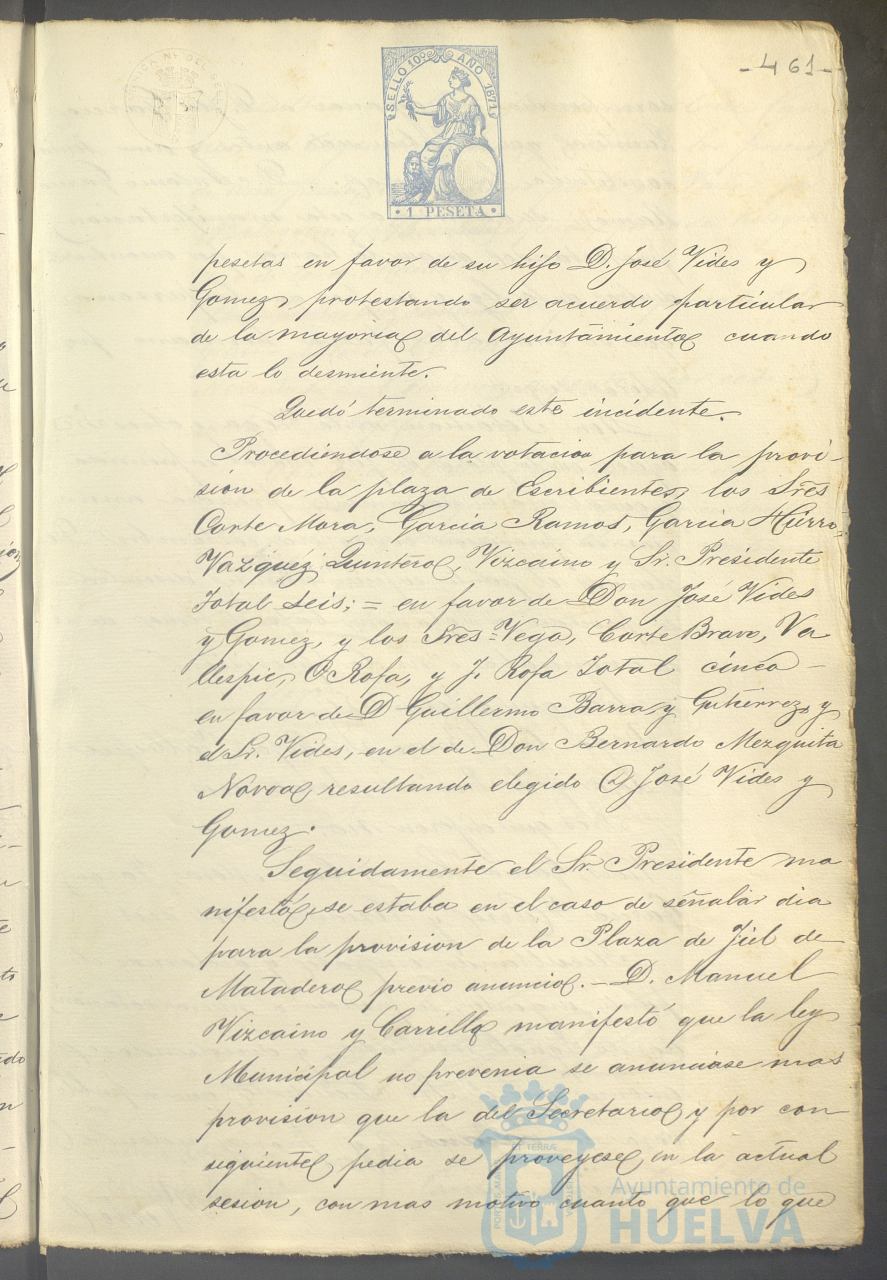 - 461 -
SELLO 10º AÑO 1871
1 PESETA
pesetas en favor de su hijo D. José Vides y
Gomez, protestando ser acuerdo particular
de la mayoria del Ayuntamiento cuando
esta lo desmiente.
Quedó terminado este incidente.
Procediéndose a la votacion para la provi-
sion de la plaza de Escribiente, los Sres
Corte Mora, Garcia Ramos, Garcia Hierro,
Vazquez, Quintero, Vizcaino y Sr. Presidente
Total seis; = en favor de Don José Vides
y Gomez, y los Sres = Vega, Corte Bravo, Va
llespie, O Rofa, y J. Rofa Total cinco -
en favor de D Guillermo Barra y Gutierrez, y
el Sr. Vides, en el de Don Bernardo Mezquita
Novoa, resultando elegido D José Vides y
Gomez.
Seguidamente el Sr. Presidente ma
nifestó, se estaba en el caso de señalar dia
para la provision de la Plaza de Fiel de
Matadero previo anuncio. - D. Manuel
Vizcaino y Carrillo manifestó que la ley
Municipal no prevenia se anunciase mas
provision que la del Secretario, y por con
siguiente pedia se proveyese, en la actual
sesion, con mas motivo cuanto que lo que
Ayuntamiento de
HUELVA